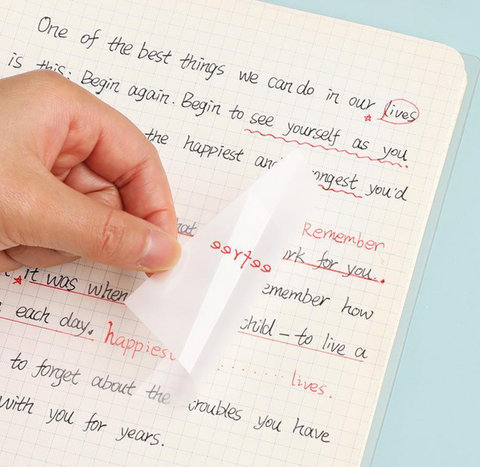 One of the best things we can do in our lives
is this: Begin again. Begin to see yourself as you
the happiest and ongest you'd
hat Remember
ork for you.
it was when emember how
each day. happiest child - to live a
lives.
to forget about the troubles you have
with you for years.